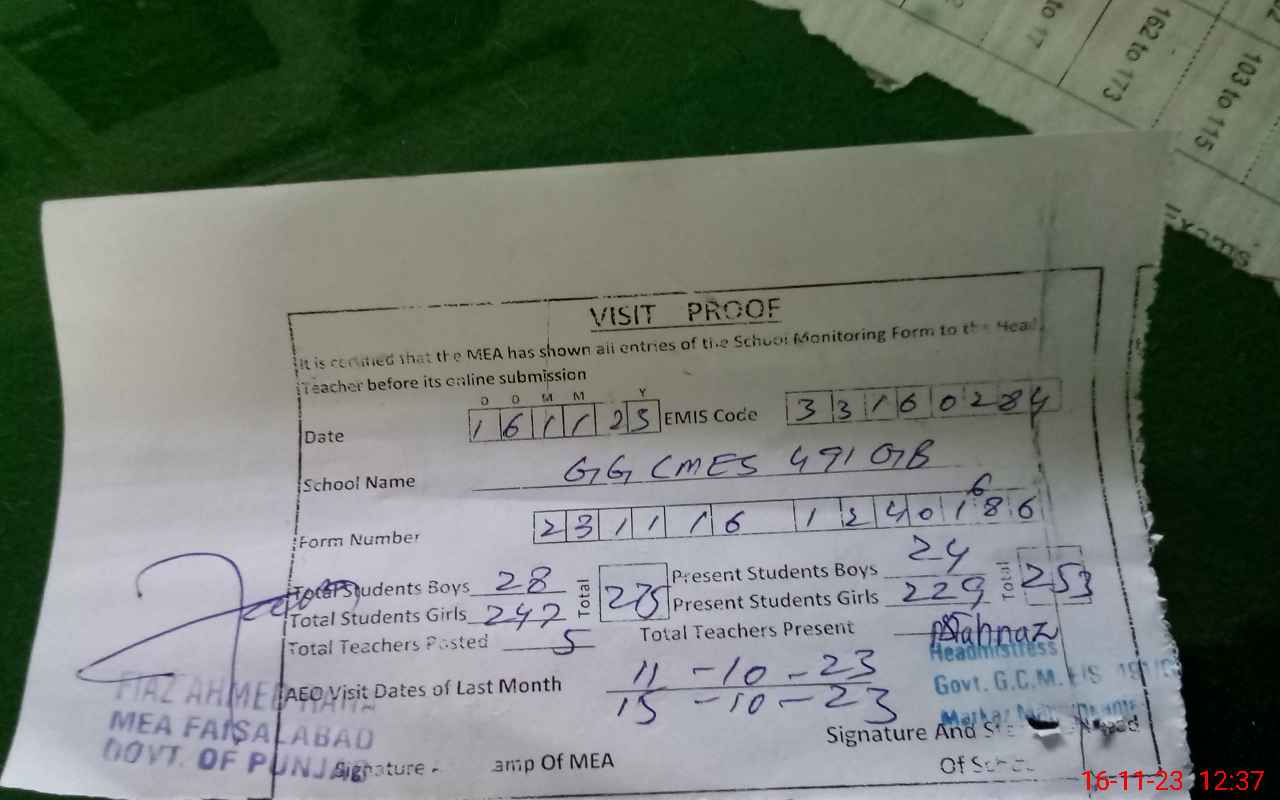 to 17
162 to 173
103 to 115
VISIT PROOF
It is certified that the MEA has shown all entries of the School Monitoring Form to the Head
Teacher before its online submission
D D M M Y
Date 161123 EMIS Code 33160284
School Name GG CMES 491 GB
6
Form Number 231116 1240186
Total Students Boys 28 Total 275 Present Students Boys 24 Total 253
Total Students Girls 247 Present Students Girls 229
Total Teachers Posted 5 Total Teachers Present
Shahnaz
Headmistress
Govt. G.C.M.
AEO Visit Dates of Last Month 11-10-23
15-10-23
AHMED
MEA FAISALABAD
GOVT. OF PUNJAB
Signature And
Signature Of MEA
Of
16-11-23 12:37